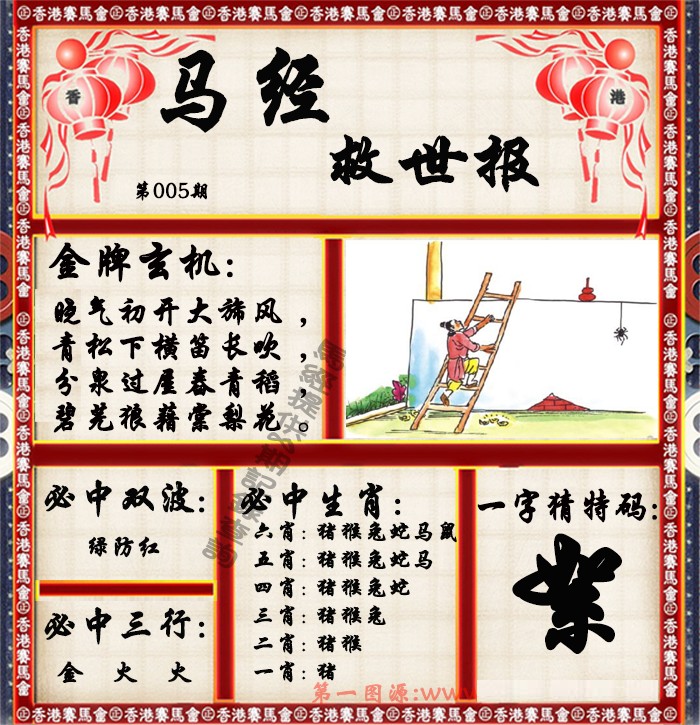 香港賽馬會
香
港
马经
救世报
第005期
金牌玄机:
晓气初开大旆风，
青松下横笛长吹，
分泉过屋春青稻，
碧芜狼藉棠梨花。
必中双波:
绿防红
必中三行:
金 火 火
必中生肖:
六肖:猪猴兔蛇马鼠
五肖:猪猴兔蛇马
四肖:猪猴兔蛇
三肖:猪猴兔
二肖:猪猴
一肖:猪
一字猜特码:
絮
第一图源:www